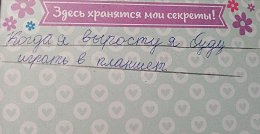 Здесь хранятся мои секреты!
Когда я выросту я буду
играть в планшет